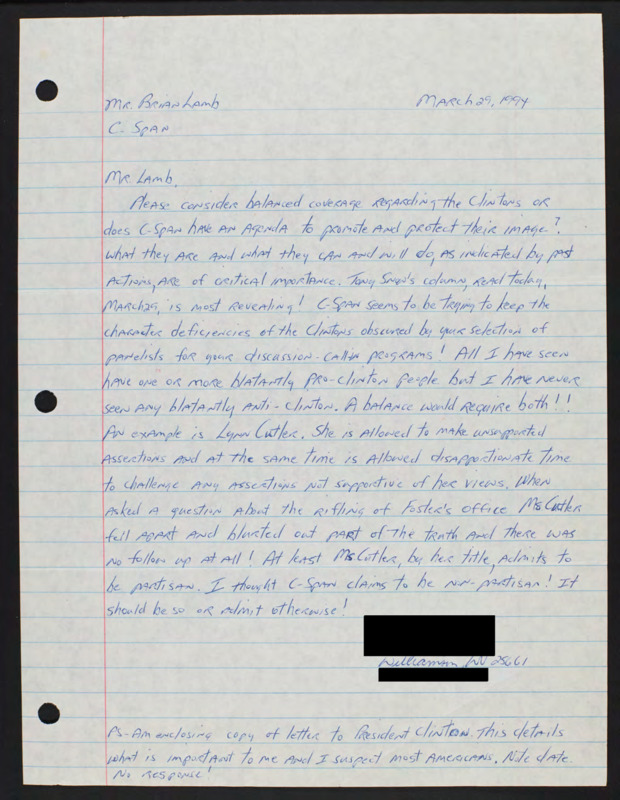 Mr. Brian Lamb March 29, 1994
C-Span
Mr. Lamb,
Please consider balanced coverage regarding the Clintons or
does C-Span have an agenda to promote and protect their image?
What they are and what they can and will do, as indicated by past
actions, are of critical importance. Tony Snow's column, read today,
March 29, is most revealing! C-Span seems to be trying to keep the
character deficiencies of the Clintons obscured by your selection of
panelists for your discussion-callin programs! All I have seen
have one or more blatantly pro-Clinton people but I have never
seen any blatantly anti-Clinton. A balance would require both!!
An example is Lynn Cutler. She is allowed to make unsupported
assertions and at the same time is allowed disapportionate time
to challenge any assertions not supportive of her views. When
asked a question about the rifling of Foster's office Ms Cutler
fell apart and blurted out part of the truth and there was
no follow up at all! At least Ms Cutler, by her title, admits to
be partisan. I thought C-Span claims to be non-partisan! It
should be so or admit otherwise!
Williamson, WV 25661
Ps-Am enclosing copy of letter to President Clinton. This details
what is important to me and I suspect most Americans. Note date.
No response!